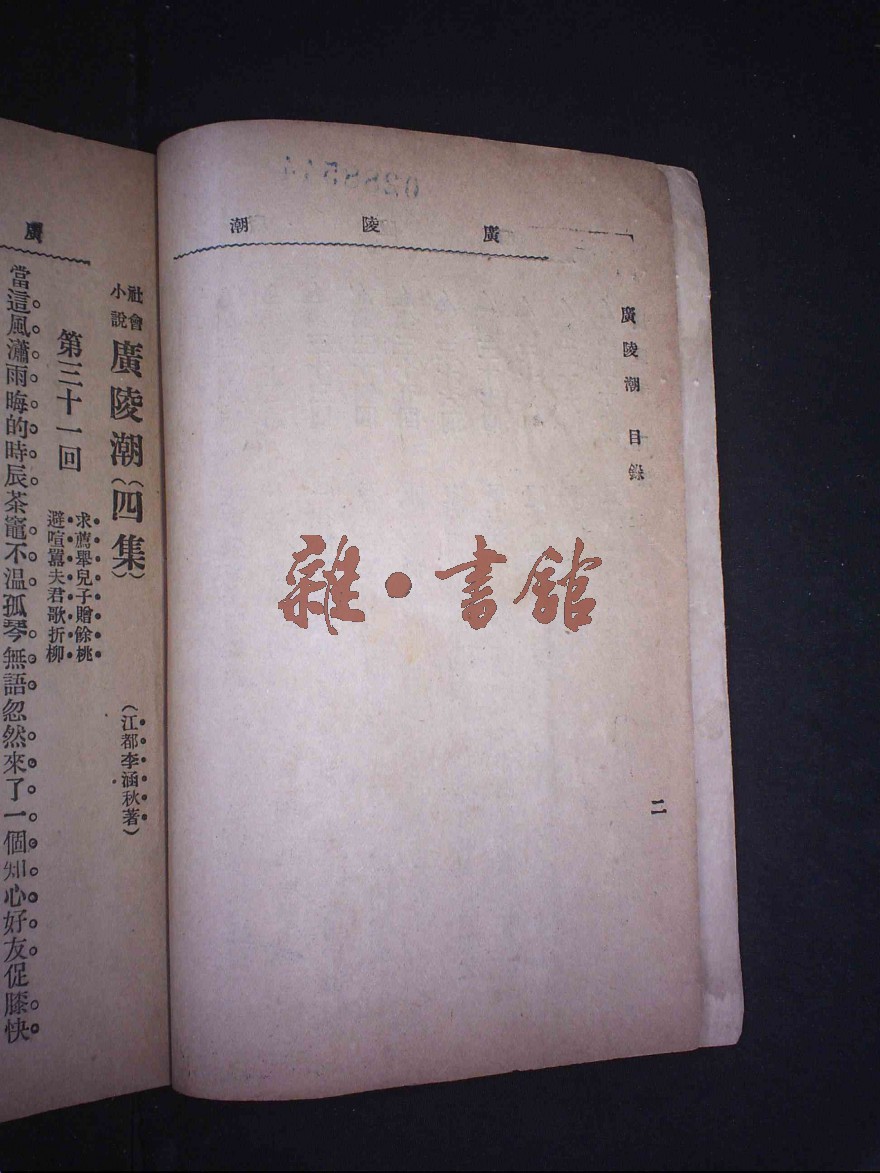 廣陵潮
廣陵潮 目錄
二
雜·書館
廣
社會小說 廣陵潮(四集)
(江都李涵秋著)
第三十一回
求薦舉兒子贈餘桃
避喧囂夫君歌折柳
當這風瀟雨晦的時辰茶竈不温孤琴無語忽然來了一個知心好友促膝快